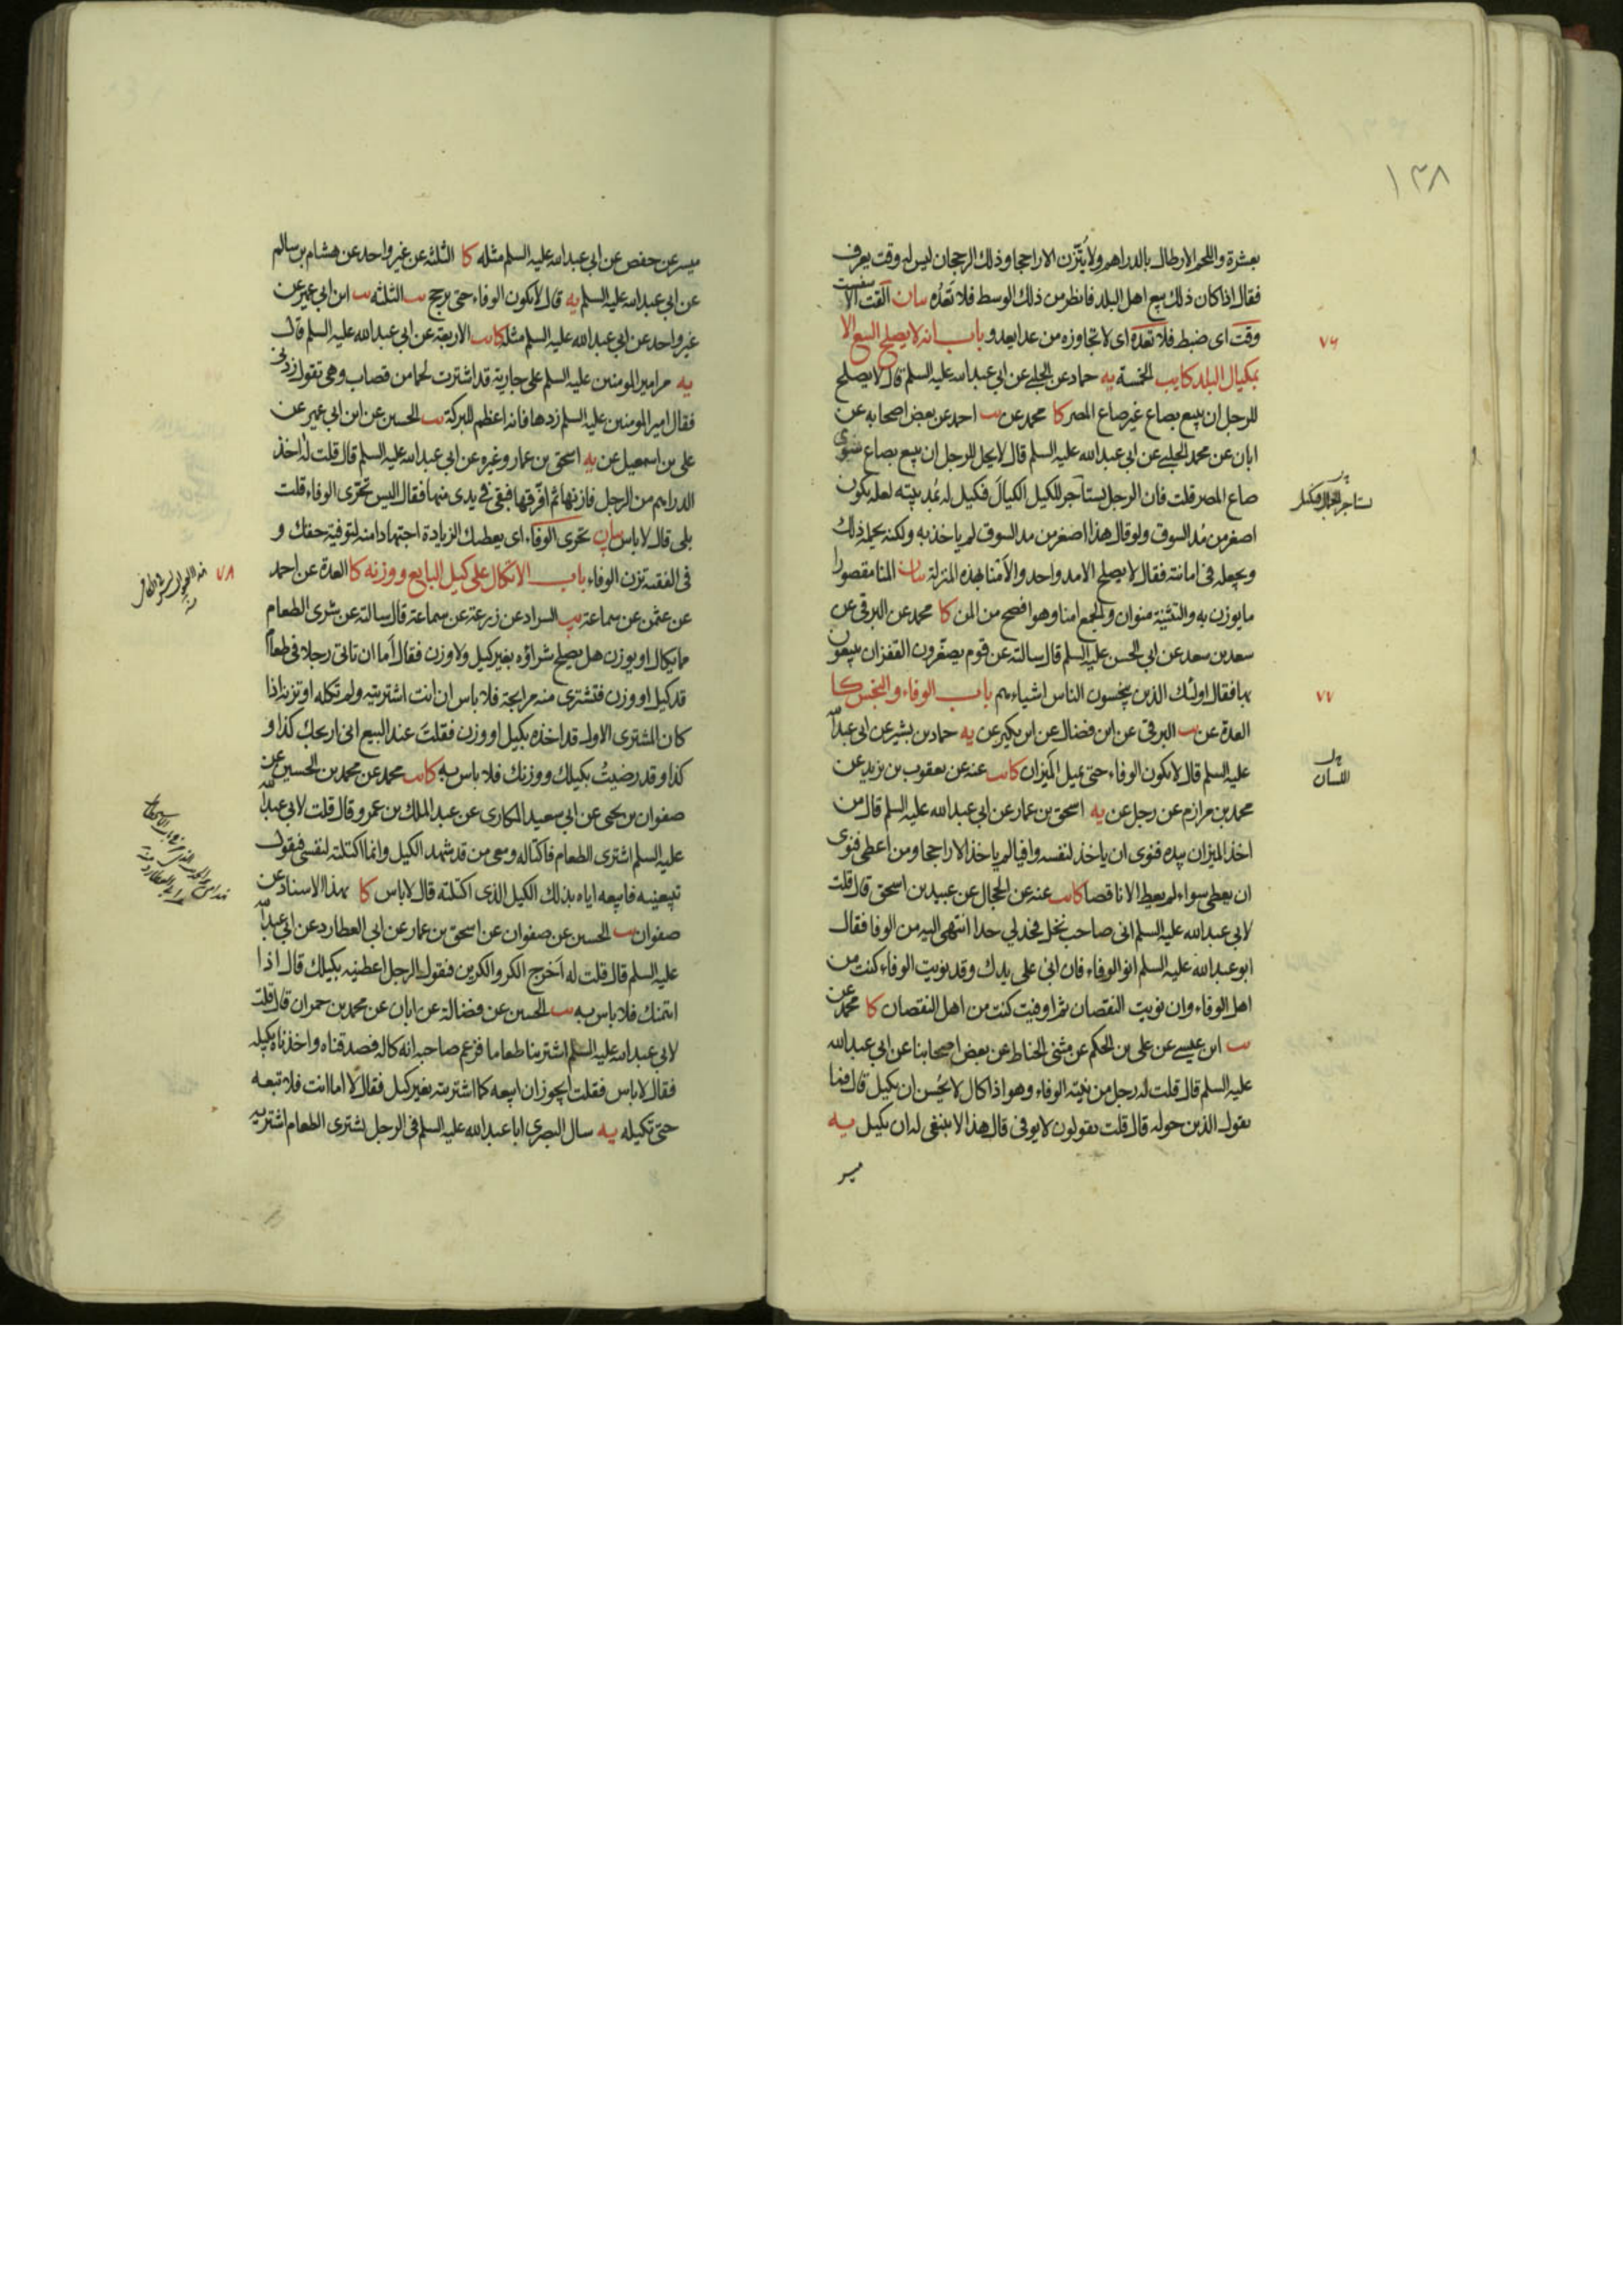 ١٣٨
بعشرة واللحم الارطال بالدراهم ولا يتزن الا راجحا وذلك الرجحان ليس له وقت يعرف
فقال اذا كان ذلك بيع اهل البلد فانظر من ذلك الوسط فلا تعده بيان القت الا
وقت اى ضبط فلا تعده اى لا تجاوزه من عدا يعدو باب انه لا يصلح البيع الا
٧٦
بمكيال البلد كا يب الخمسة يه حماد عن الحلبي عن ابي عبد الله عليه السلم قال لا يصلح
للرجل ان يبيع بصاع غير صاع المصر كا محمد عن احمد عن بعض اصحابه عن
ابان عن محمد الحلبي عن ابي عبد الله عليه السلم قال لا يحل للرجل ان يبيع بصاع سوى
صاع المصر قلت فان الرجل يستاجر للكيل الكيال فيكيل له بمد بيته لعله يكون
اصغر من مد السوق ولو قال هذا اصغر من مد السوق لم ياخذ به ولكنه يحمله ذلك
ويجعله فى امانته فقال لا يصلح الا مد واحد والامنا بهذه المنزلة بيان المنا مقصورا
ما يوزن به والتثنية منوان والجمع امنا وهو افصح من المن كا محمد عن البرقى عن
سعد بن سعد عن ابي الحسن عليه السلم قال سالته عن قوم يصغرون القفزان يبيعون
بها فقال اولئك الذين يبخسون الناس اشياءهم باب الوفاء والبخس كا
٧٧
العدة عن البرقى عن ابن فضال عن ابن بكير عن يه حماد بن بشير عن ابى عبد الله
عليه السلم قال لا يكون الوفاء حتى يميل الميزان كا يب عنه عن يعقوب بن يزيد عن
اللسان
محمد بن مرازم عن رجل عن يه اسحق بن عمار عن ابي عبد الله عليه السلم قال من
اخذ الميزان بيده فنوى ان ياخذ لنفسه وافيا لم ياخذ الا راجحا ومن اعطى فنوى
ان يعطى سواء لم يعط الا ناقصا كا يب عنه عن الحجال عن عبيد بن اسحق قال قلت
لابي عبد الله عليه السلم انى صاحب نخل فخبرني بحد انتهى اليه من الوفا فقال
ابو عبد الله عليه السلم انو الوفاء فان اتى على يدك وقد نويت الوفاء كنت من
اهل الوفاء وان نويت النقصان ثم اوفيت كنت من اهل النقصان كا محمد عن
ابن عيسى عن على بن الحكم عن مثنى الحناط عن بعض اصحابنا عن ابي عبد الله
عليه السلم قال قلت له رجل من نيته الوفاء وهو اذا كال لا يحسن ان يكيل قال فما
يقول الذين حوله قال قلت يقولون لا يوفى قال هذا لا ينبغى له ان يكيل يه
ميسر
ميسر عن حفص عن ابى عبد الله عليه السلم مثله كا الثلثة عن غير واحد عن هشام بن سالم
عن ابي عبد الله عليه السلم يه قال لا يكون الوفاء حتى يرجح يب الثلثة يب ابن ابي عمير عن
غير واحد عن ابي عبد الله عليه السلم مثله كا يب الاربعة عن ابي عبد الله عليه السلم قال
يه مر امير المومنين عليه السلم على جارية قد اشترت لحما من قصاب وهى تقول زدنى
فقال امير المومنين عليه السلم زدها فانه اعظم للبركة يب الحسين عن ابن ابي عمير عن
على بن اسمعيل عن يه اسحق بن عمار وغيره عن ابي عبد الله عليه السلم قال قلت له اخذ
الدراهم من الرجل فازنها ثم افرقها فيبقى فى يدى منها فقال اليس تحرى الوفاء قلت
بلى قال لا باس بيان تحرى الوفاء اى يعطيك الزيادة اجتهادا منه لتوفية حقك و
فى الفقيه تزن الوفاء باب الاتكال على كيل البايع ووزنه كا العدة عن احمد
٧٨
عن عثمن عن سماعة يب السراد عن زرعة عن سماعة قال سالته عن شرى الطعام
مما يكال او يوزن هل يصلح شراؤه بغير كيل ولا وزن فقال اما ان تاتى رجلا فى طعام
قد كيل او وزن فتشترى منه مرابحة فلا باس ان انت اشتريته ولم تكله او تزنه اذا
كان المشترى الاول قد اخذه بكيل او وزن فقلت عند البيع انى اربحك كذا و
كذا وقد رضيت بكيلك ووزنك فلا باس به كا يب محمد عن محمد بن الحسين عن
صفوان بن يحيى عن ابي سعيد المكارى عن عبد الملك بن عمرو قال قلت لابي عبد الله
عليه السلم اشترى الطعام فاكتاله ومعى من قد شهد الكيل وانما اكتلته لنفسى فيقول
تبيعنيه فابيعه اياه بذلك الكيل الذى اكتلته قال لا باس كا بهذا الاسناد عن
صفوان يب الحسين عن صفوان عن اسحق بن عمار عن ابى العطارد عن ابي عبد الله
عليه السلم قال قلت له اخرج الكر والكرين فيقول الرجل اعطنيه بكيلك قال اذا
ائتمنك فلا باس به يب الحسين عن فضالة عن ابان عن محمد بن حمران قال قلت
لابي عبد الله عليه السلم اشترينا طعاما فزعم صاحبه انه كاله فصدقناه واخذناه بكيله
فقال لا باس فقلت ايجوز ان ابيعه كما اشتريته بغير كيل فقال لا اما انت فلا تبعه
حتى تكيله يه سال البصرى ابا عبد الله عليه السلم فى الرجل يشترى الطعام اشتريه